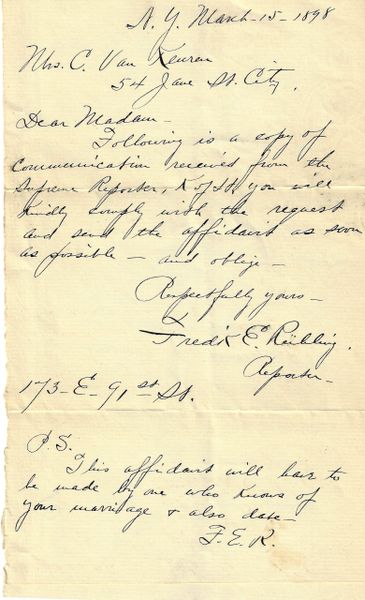 N.Y. March-15-1898
Mrs. C. Van Keuren
54 Jane St. City.
Dear Madam-
Following is a copy of
Communication received from the
Supreme Reporter, K of H. you will
kindly comply with the request
and send the affidavit as soon
as possible - and oblige -
Respectfully yours-
Fredk E. Rübling.
Reporter-
173-E-91st St.
P.S.
This affidavit will have to
be made by one who knows of
your marriage & also date-
F.E.R.